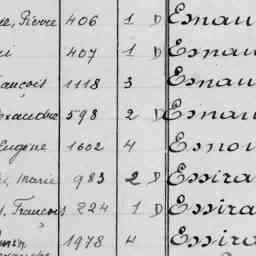 Pierre 406 1 D Esnau
407 1 D Esnau
François 1118 3 Esnau
exandre 598 2 D Esnau
Eugène 1602 4 Esnou
Marie 983 2 D Essira
François 224 1 D Essira
1978 4 Essira